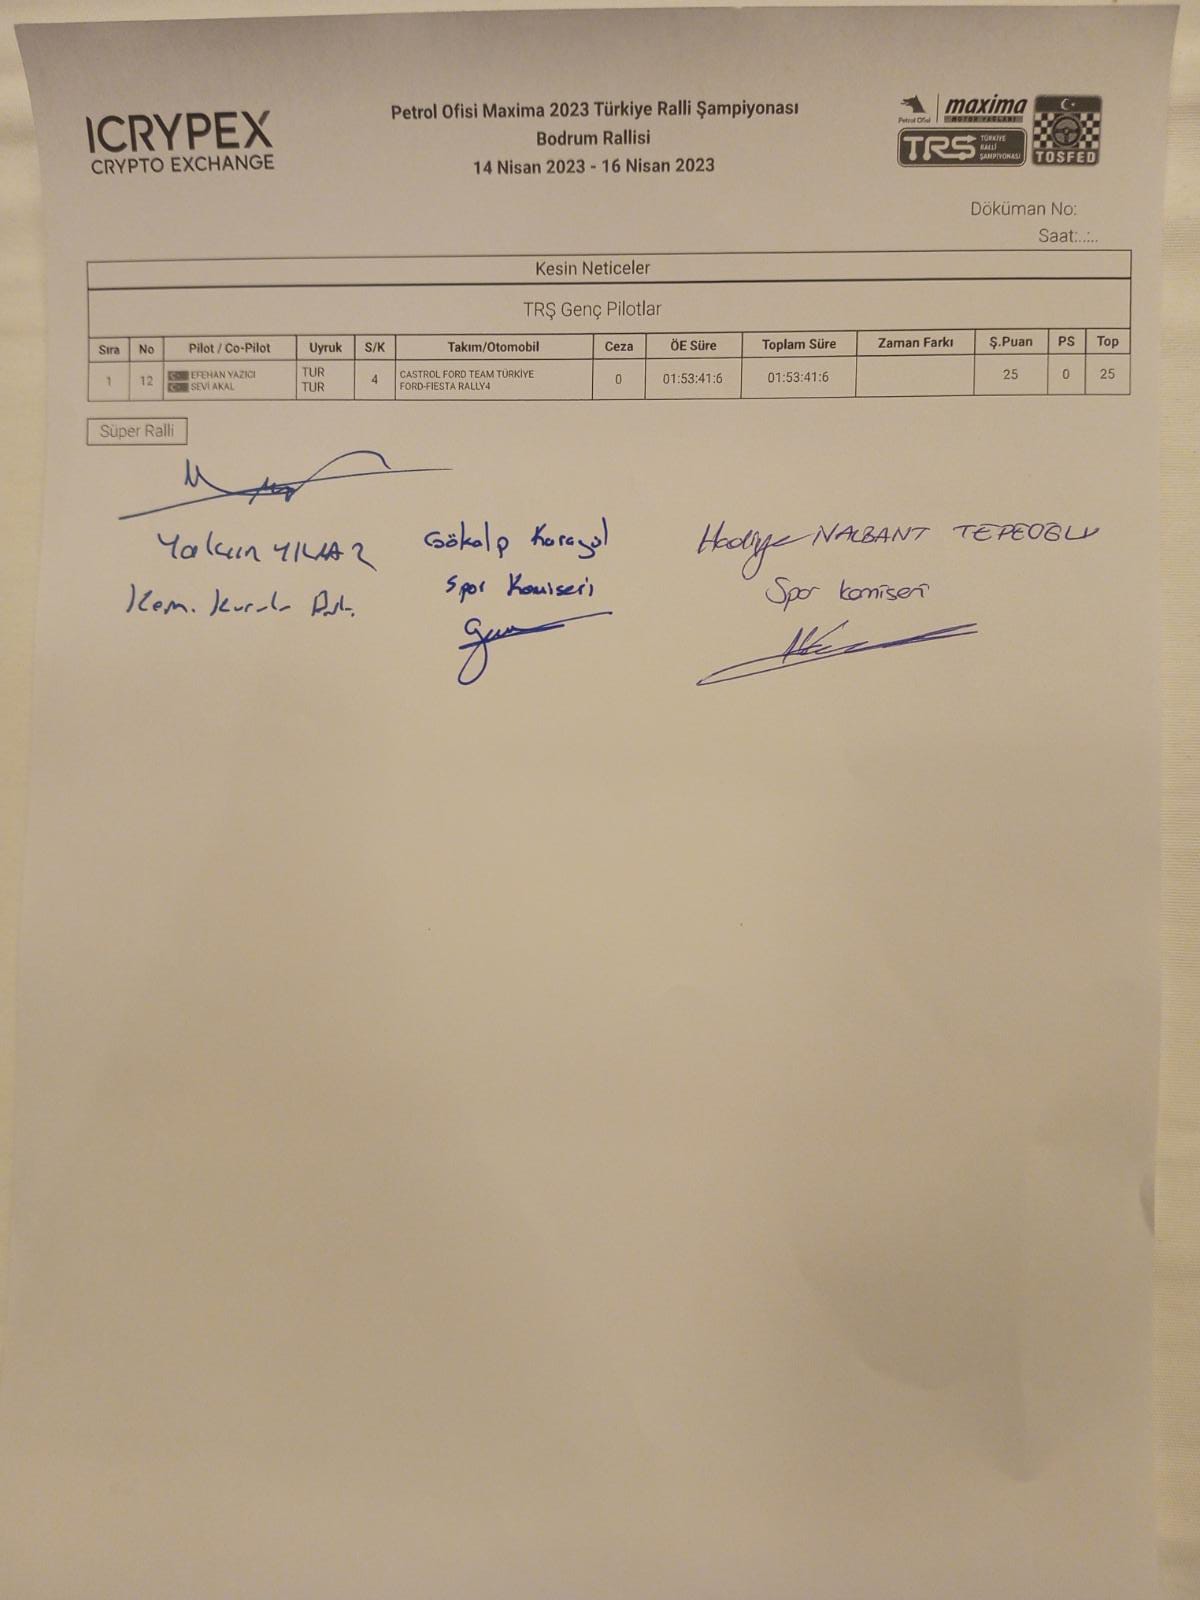 ICRYPEX
CRYPTO EXCHANGE
Petrol Ofisi Maxima 2023 Türkiye Ralli Şampiyonası
Bodrum Rallisi
14 Nisan 2023 - 16 Nisan 2023
Petrol Ofisi
maxima
MOTOR YAĞLARI
TRŞ TÜRKİYE RALLİ ŞAMPİYONASI
TOSFED
Döküman No:
Saat:..:..
Kesin Neticeler
TRŞ Genç Pilotlar
Sıra No Pilot / Co-Pilot Uyruk S/K Takım/Otomobil Ceza ÖE Süre Toplam Süre Zaman Farkı Ş.Puan PS Top
1 12 EFEHAN YAZICI TUR 4 CASTROL FORD TEAM TÜRKİYE 0 01:53:41:6 01:53:41:6 25 0 25
SEVİ AKAL TUR FORD-FIESTA RALLY4
Süper Ralli
Yalçın YILMAZ Gökalp Karagül Hadiye NALBANT TEPEOĞLU
Kom. Spor Komiseri Spor komiseri